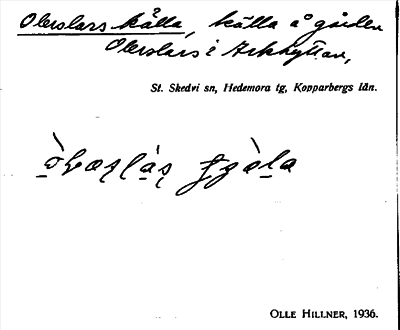 Oberslars källa, källa å gården
Oberslars i Arkhyttan,
St. Skedvi sn, Hedemora tg, Kopparbergs län.
OLLE HILLNER, 1936.